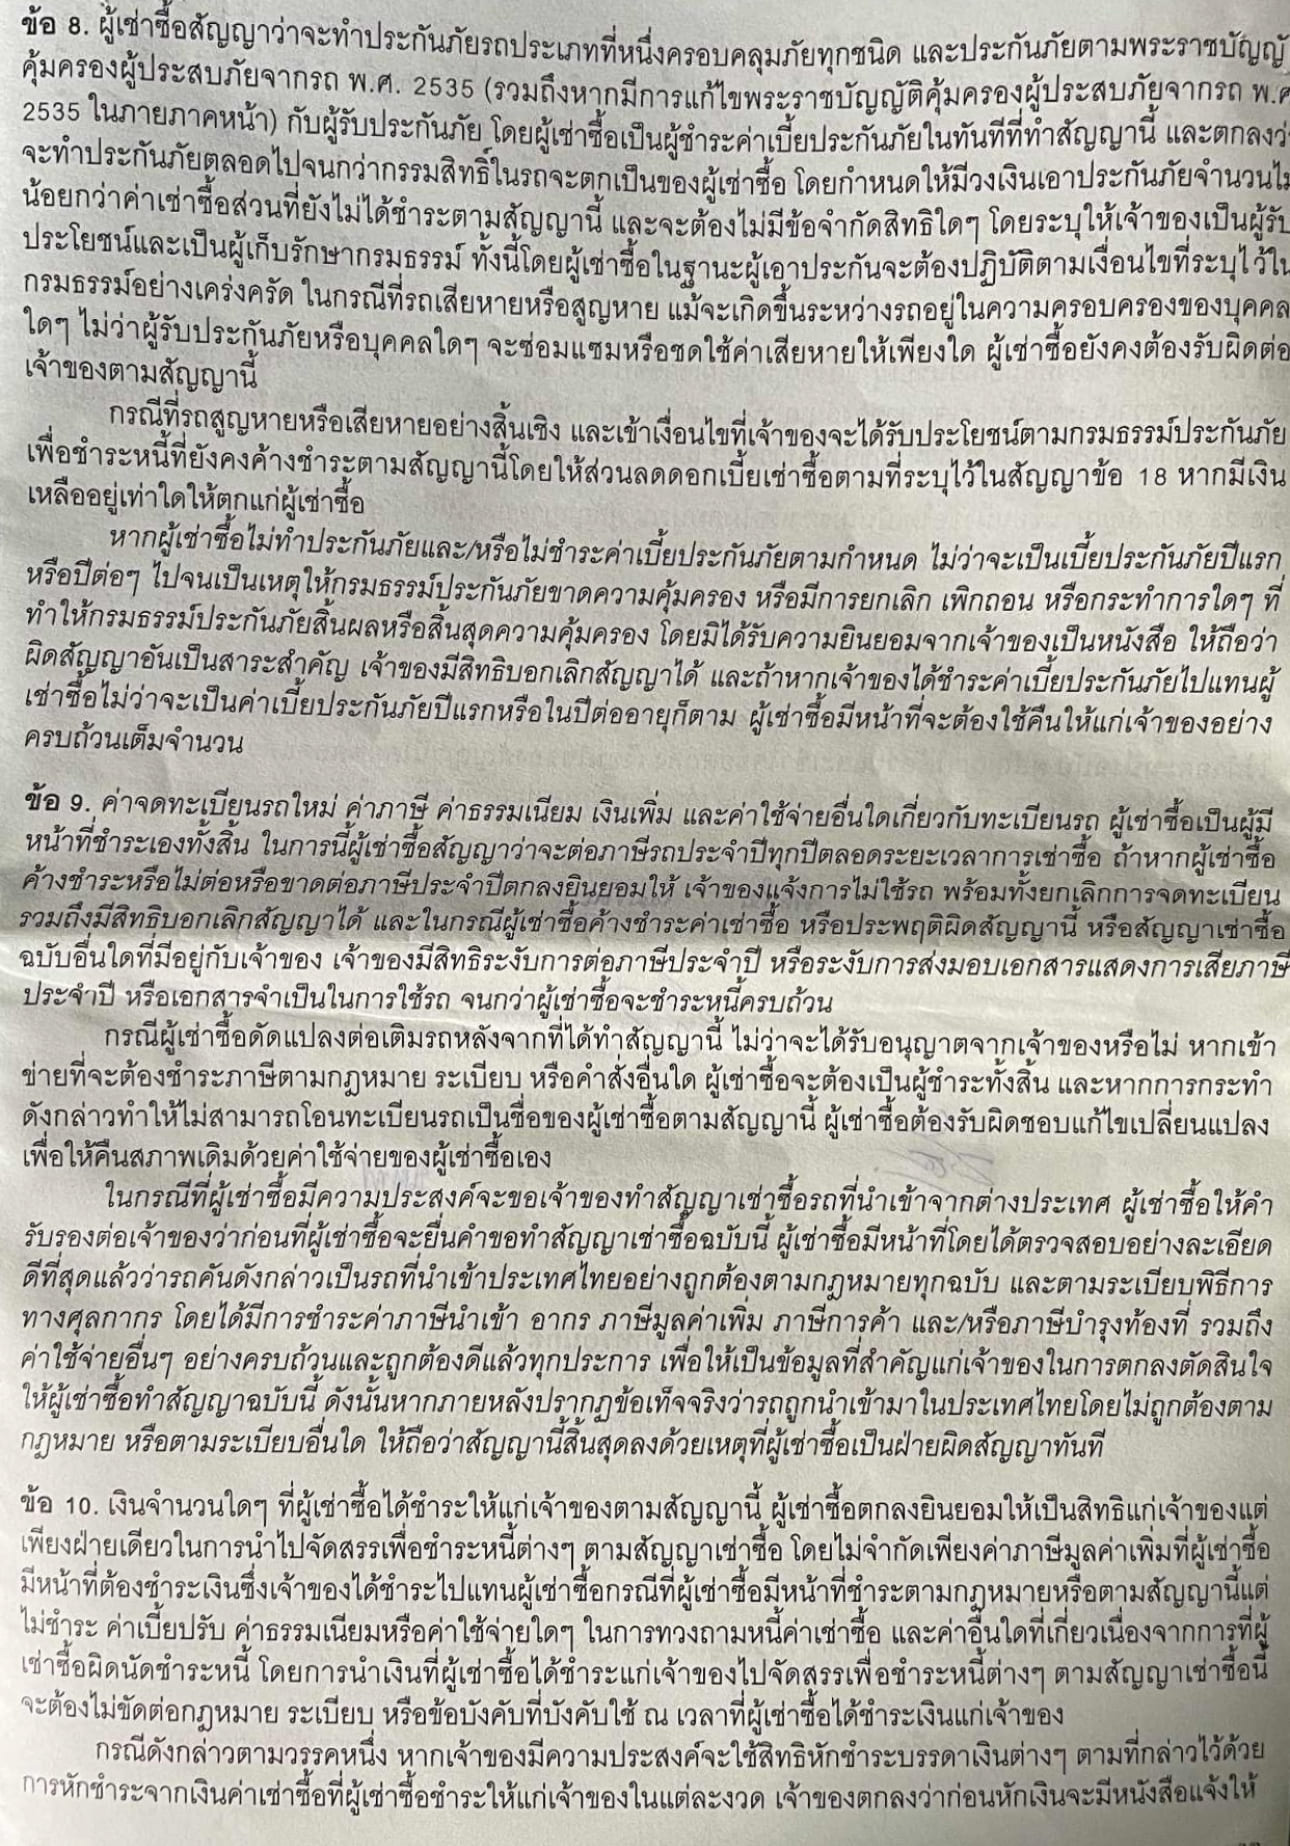 ข้อ 8. ผู้เช่าซื้อสัญญาว่าจะทำประกันภัยรถประเภทที่หนึ่งครอบคลุมภัยทุกชนิด และประกันภัยตามพระราชบัญญั
คุ้มครองผู้ประสบภัยจากรถ พ.ศ. 2535 (รวมถึงหากมีการแก้ไขพระราชบัญญัติคุ้มครองผู้ประสบภัยจากรถ พ.ศ
2535 ในภายภาคหน้า) กับผู้รับประกันภัย โดยผู้เช่าซื้อเป็นผู้ชำระค่าเบี้ยประกันภัยในทันทีที่ทำสัญญานี้ และตกลงว่
จะทำประกันภัยตลอดไปจนกว่ากรรมสิทธิ์ในรถจะตกเป็นของผู้เช่าซื้อ โดยกำหนดให้มีวงเงินเอาประกันภัยจำนวนไม
น้อยกว่าค่าเช่าซื้อส่วนที่ยังไม่ได้ชำระตามสัญญานี้ และจะต้องไม่มีข้อจำกัดสิทธิใดๆ โดยระบุให้เจ้าของเป็นผู้รับ
ประโยชน์และเป็นผู้เก็บรักษากรมธรรม์ ทั้งนี้โดยผู้เช่าซื้อในฐานะผู้เอาประกันจะต้องปฏิบัติตามเงื่อนไขที่ระบุไว้ใน
กรมธรรม์อย่างเคร่งครัด ในกรณีที่รถเสียหายหรือสูญหาย แม้จะเกิดขึ้นระหว่างรถอยู่ในความครอบครองของบุคคล
ใดๆ ไม่ว่าผู้รับประกันภัยหรือบุคคลใดๆ จะซ่อมแซมหรือชดใช้ค่าเสียหายให้เพียงใด ผู้เช่าซื้อยังคงต้องรับผิดต่อ
เจ้าของตามสัญญานี้
กรณีที่รถสูญหายหรือเสียหายอย่างสิ้นเชิง และเข้าเงื่อนไขที่เจ้าของจะได้รับประโยชน์ตามกรมธรรม์ประกันภัย
เพื่อชำระหนี้ที่ยังคงค้างชำระตามสัญญานี้โดยให้ส่วนลดดอกเบี้ยเช่าซื้อตามที่ระบุไว้ในสัญญาข้อ 18 หากมีเงิน
เหลืออยู่เท่าใดให้ตกแก่ผู้เช่าซื้อ
หากผู้เช่าซื้อไม่ทำประกันภัยและ/หรือไม่ชำระค่าเบี้ยประกันภัยตามกำหนด ไม่ว่าจะเป็นเบี้ยประกันภัยปีแรก
หรือปีต่อๆ ไปจนเป็นเหตุให้กรมธรรม์ประกันภัยขาดความคุ้มครอง หรือมีการยกเลิก เพิกถอน หรือกระทำการใดๆ ที่
ทำให้กรมธรรม์ประกันภัยสิ้นผลหรือสิ้นสุดความคุ้มครอง โดยมิได้รับความยินยอมจากเจ้าของเป็นหนังสือ ให้ถือว่า
ผิดสัญญาอันเป็นสาระสำคัญ เจ้าของมีสิทธิบอกเลิกสัญญาได้ และถ้าหากเจ้าของได้ชำระค่าเบี้ยประกันภัยไปแทนผู้
เช่าซื้อไม่ว่าจะเป็นค่าเบี้ยประกันภัยปีแรกหรือในปีต่ออายุก็ตาม ผู้เช่าซื้อมีหน้าที่จะต้องใช้คืนให้แก่เจ้าของอย่าง
ครบถ้วนเต็มจำนวน
ข้อ 9. ค่าจดทะเบียนรถใหม่ ค่าภาษี ค่าธรรมเนียม เงินเพิ่ม และค่าใช้จ่ายอื่นใดเกี่ยวกับทะเบียนรถ ผู้เช่าซื้อเป็นผู้มี
หน้าที่ชำระเองทั้งสิ้น ในการนี้ผู้เช่าซื้อสัญญาว่าจะต่อภาษีรถประจำปีทุกปีตลอดระยะเวลาการเช่าซื้อ ถ้าหากผู้เช่าซื้อ
ค้างชำระหรือไม่ต่อหรือขาดต่อภาษีประจำปีตกลงยินยอมให้ เจ้าของแจ้งการไม่ใช้รถ พร้อมทั้งยกเลิกการจดทะเบียน
รวมถึงมีสิทธิบอกเลิกสัญญาได้ และในกรณีผู้เช่าซื้อค้างชำระค่าเช่าซื้อ หรือประพฤติผิดสัญญานี้ หรือสัญญาเช่าซื้อ
ฉบับอื่นใดที่มีอยู่กับเจ้าของ เจ้าของมีสิทธิระงับการต่อภาษีประจำปี หรือระงับการส่งมอบเอกสารแสดงการเสียภาษี
ประจำปี หรือเอกสารจำเป็นในการใช้รถ จนกว่าผู้เช่าซื้อจะชำระหนี้ครบถ้วน
กรณีผู้เช่าซื้อดัดแปลงต่อเติมรถหลังจากที่ได้ทำสัญญานี้ ไม่ว่าจะได้รับอนุญาตจากเจ้าของหรือไม่ หากเข้า
ข่ายที่จะต้องชำระภาษีตามกฎหมาย ระเบียบ หรือคำสั่งอื่นใด ผู้เช่าซื้อจะต้องเป็นผู้ชำระทั้งสิ้น และหากการกระทำ
ดังกล่าวทำให้ไม่สามารถโอนทะเบียนรถเป็นชื่อของผู้เช่าซื้อตามสัญญานี้ ผู้เช่าซื้อต้องรับผิดชอบแก้ไขเปลี่ยนแปลง
เพื่อให้คืนสภาพเดิมด้วยค่าใช้จ่ายของผู้เช่าซื้อเอง
ในกรณีที่ผู้เช่าซื้อมีความประสงค์จะขอเจ้าของทำสัญญาเช่าซื้อรถที่นำเข้าจากต่างประเทศ ผู้เช่าซื้อให้คำ
รับรองต่อเจ้าของว่าก่อนที่ผู้เช่าซื้อจะยื่นคำขอทำสัญญาเช่าซื้อฉบับนี้ ผู้เช่าซื้อมีหน้าที่โดยได้ตรวจสอบอย่างละเอียด
ดีที่สุดแล้วว่ารถคันดังกล่าวเป็นรถที่นำเข้าประเทศไทยอย่างถูกต้องตามกฎหมายทุกฉบับ และตามระเบียบพิธีการ
ทางศุลกากร โดยได้มีการชำระค่าภาษีนำเข้า อากร ภาษีมูลค่าเพิ่ม ภาษีการค้า และ/หรือภาษีบำรุงท้องที่ รวมถึง
ค่าใช้จ่ายอื่นๆ อย่างครบถ้วนและถูกต้องดีแล้วทุกประการ เพื่อให้เป็นข้อมูลที่สำคัญแก่เจ้าของในการตกลงตัดสินใจ
ให้ผู้เช่าซื้อทำสัญญาฉบับนี้ ดังนั้นหากภายหลังปรากฏข้อเท็จจริงว่ารถถูกนำเข้ามาในประเทศไทยโดยไม่ถูกต้องตาม
กฎหมาย หรือตามระเบียบอื่นใด ให้ถือว่าสัญญานี้สิ้นสุดลงด้วยเหตุที่ผู้เช่าซื้อเป็นฝ่ายผิดสัญญาทันที
ข้อ 10. เงินจำนวนใดๆ ที่ผู้เช่าซื้อได้ชำระให้แก่เจ้าของตามสัญญานี้ ผู้เช่าซื้อตกลงยินยอมให้เป็นสิทธิแก่เจ้าของแต่
เพียงฝ่ายเดียวในการนำไปจัดสรรเพื่อชำระหนี้ต่างๆ ตามสัญญาเช่าซื้อ โดยไม่จำกัดเพียงค่าภาษีมูลค่าเพิ่มที่ผู้เช่าซื้อ
มีหน้าที่ต้องชำระเงินซึ่งเจ้าของได้ชำระไปแทนผู้เช่าซื้อกรณีที่ผู้เช่าซื้อมีหน้าที่ชำระตามกฎหมายหรือตามสัญญานี้แต่
ไม่ชำระ ค่าเบี้ยปรับ ค่าธรรมเนียมหรือค่าใช้จ่ายใดๆ ในการทวงถามหนี้ค่าเช่าซื้อ และค่าอื่นใดที่เกี่ยวเนื่องจากการที่ผู้
เช่าซื้อผิดนัดชำระหนี้ โดยการนำเงินที่ผู้เช่าซื้อได้ชำระแก่เจ้าของไปจัดสรรเพื่อชำระหนี้ต่างๆ ตามสัญญาเช่าซื้อนี้
จะต้องไม่ขัดต่อกฎหมาย ระเบียบ หรือข้อบังคับที่บังคับใช้ ณ เวลาที่ผู้เช่าซื้อได้ชำระเงินแก่เจ้าของ
กรณีดังกล่าวตามวรรคหนึ่ง หากเจ้าของมีความประสงค์จะใช้สิทธิหักชำระบรรดาเงินต่างๆ ตามที่กล่าวไว้ด้วย
การหักชำระจากเงินค่าเช่าซื้อที่ผู้เช่าซื้อชำระให้แก่เจ้าของในแต่ละงวด เจ้าของตกลงว่าก่อนหักเงินจะมีหนังสือแจ้งให้